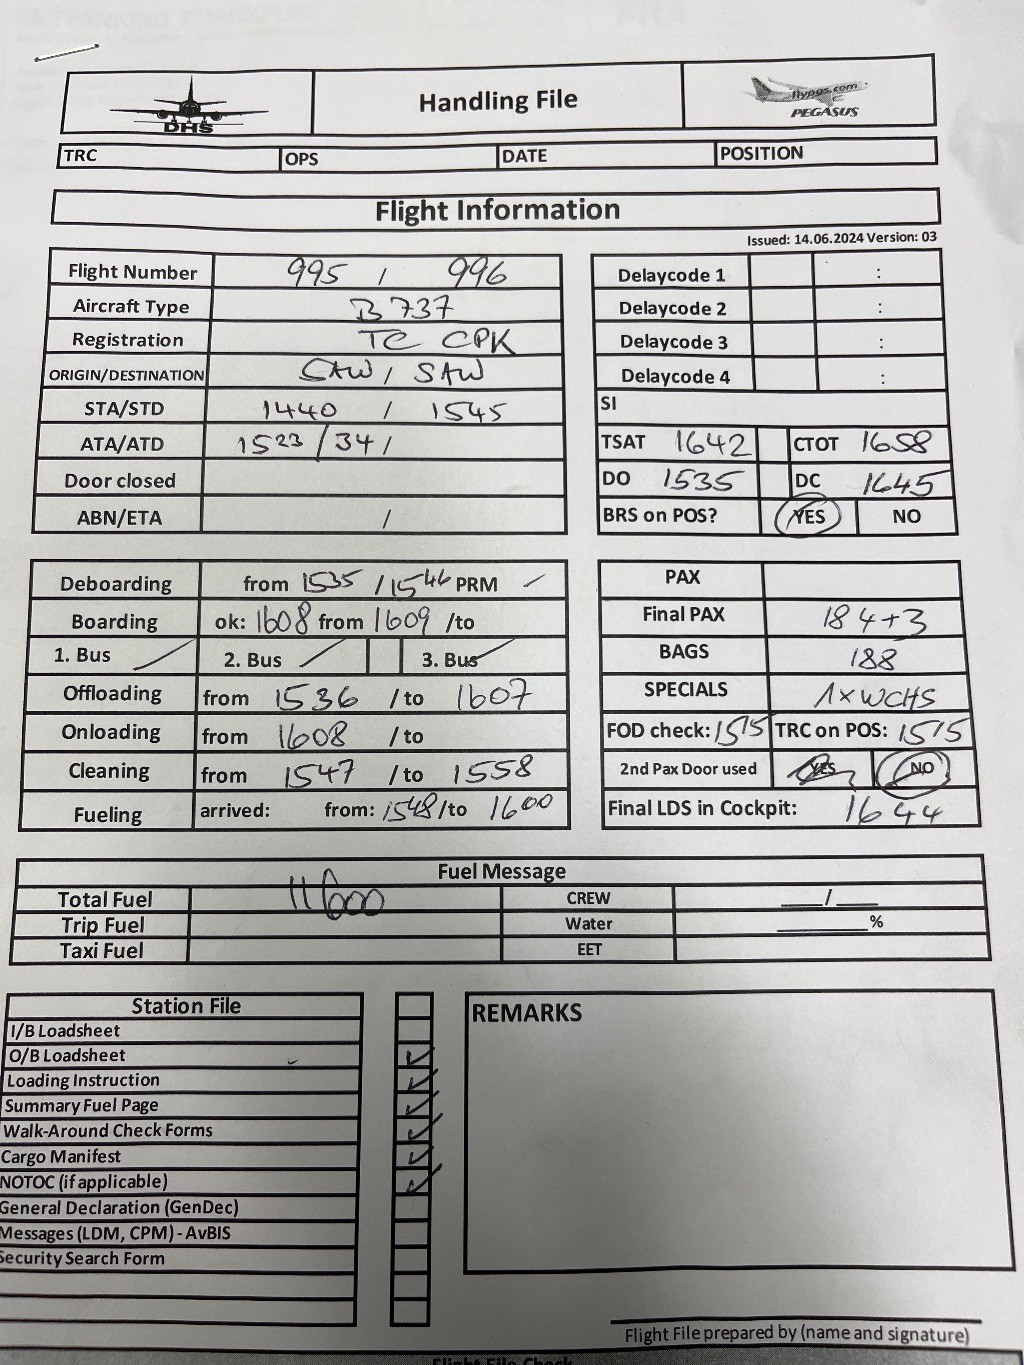 DHS
Handling File
flypgs.com
PEGASUS
TRC OPS DATE POSITION
Flight Information
Issued: 14.06.2024 Version: 03
Flight Number 995 / 996
Aircraft Type B 737
Registration TC CPK
ORIGIN/DESTINATION SAW / SAW
STA/STD 1440 / 1545
ATA/ATD 1523/34 /
Door closed
ABN/ETA /
Delaycode 1 :
Delaycode 2 :
Delaycode 3 :
Delaycode 4 :
SI
TSAT 1642 CTOT 1658
DO 1535 DC 1645
BRS on POS? YES NO
Deboarding from 1535 /1546 PRM
Boarding ok: 1608 from 1609 /to
1. Bus 2. Bus 3. Bus
Offloading from 1536 /to 1607
Onloading from 1608 /to
Cleaning from 1547 /to 1558
Fueling arrived: from: 1548/to 1600
PAX
Final PAX 184+3
BAGS 188
SPECIALS 1xWCHS
FOD check: 1515 TRC on POS: 1515
2nd Pax Door used YES NO
Final LDS in Cockpit: 1644
Fuel Message
Total Fuel 11600 CREW ___/___
Trip Fuel Water ______%
Taxi Fuel EET
Station File
I/B Loadsheet
O/B Loadsheet
Loading Instruction
Summary Fuel Page
Walk-Around Check Forms
Cargo Manifest
NOTOC (if applicable)
General Declaration (GenDec)
Messages (LDM, CPM) - AvBIS
Security Search Form
REMARKS
Flight File prepared by (name and signature)
Flight File Check